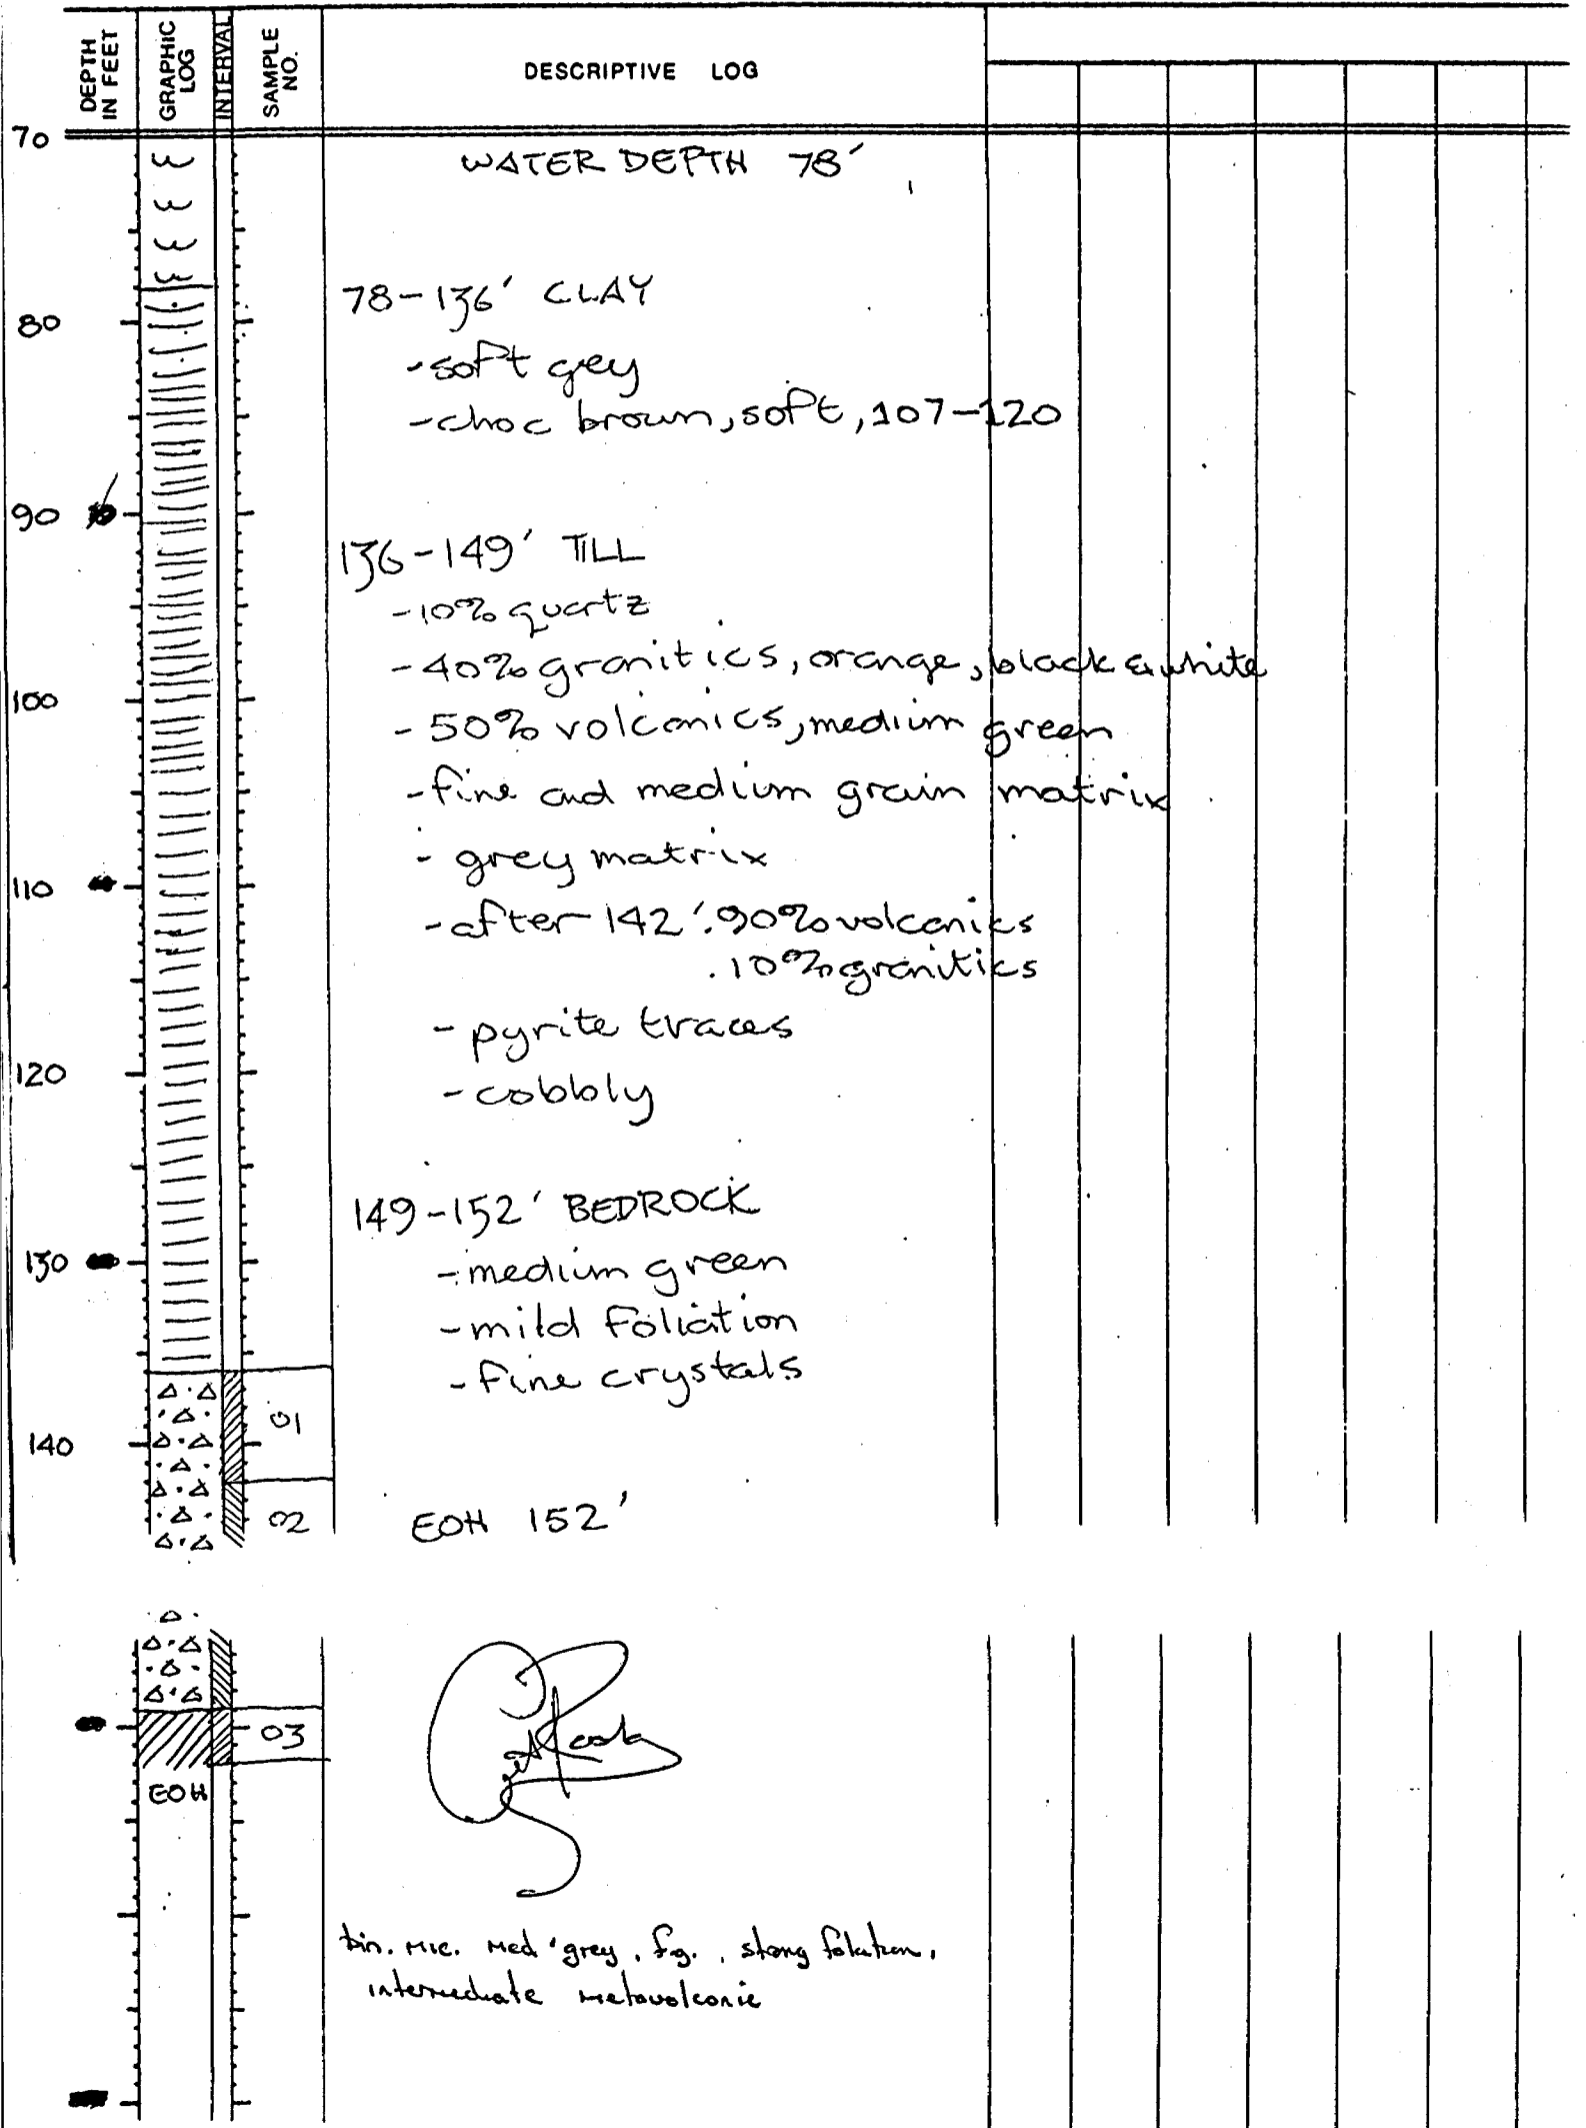 DEPTH IN FEET
GRAPHIC LOG
INTERVAL
SAMPLE NO.
DESCRIPTIVE LOG
70
WATER DEPTH 78'
78-136' CLAY
80
-soft gey
-choc brown, soft, 107-120
90
136-149' TILL
-10% quartz
-40% granitics, orange, black & white
100
-50% volcanics, medium green
-fine and medium grain matrix
-grey matrix
110
-after 142'. 90% volcanics
.10% granitics
-pyrite traces
120
-cobbly
149-152' BEDROCK
130
-medium green
-mild foliation
-fine crystals
01
140
02
EOH 152'
03
EOH
bin. mic. med grey, f.g., stong foliation,
intermediate metavolcanic